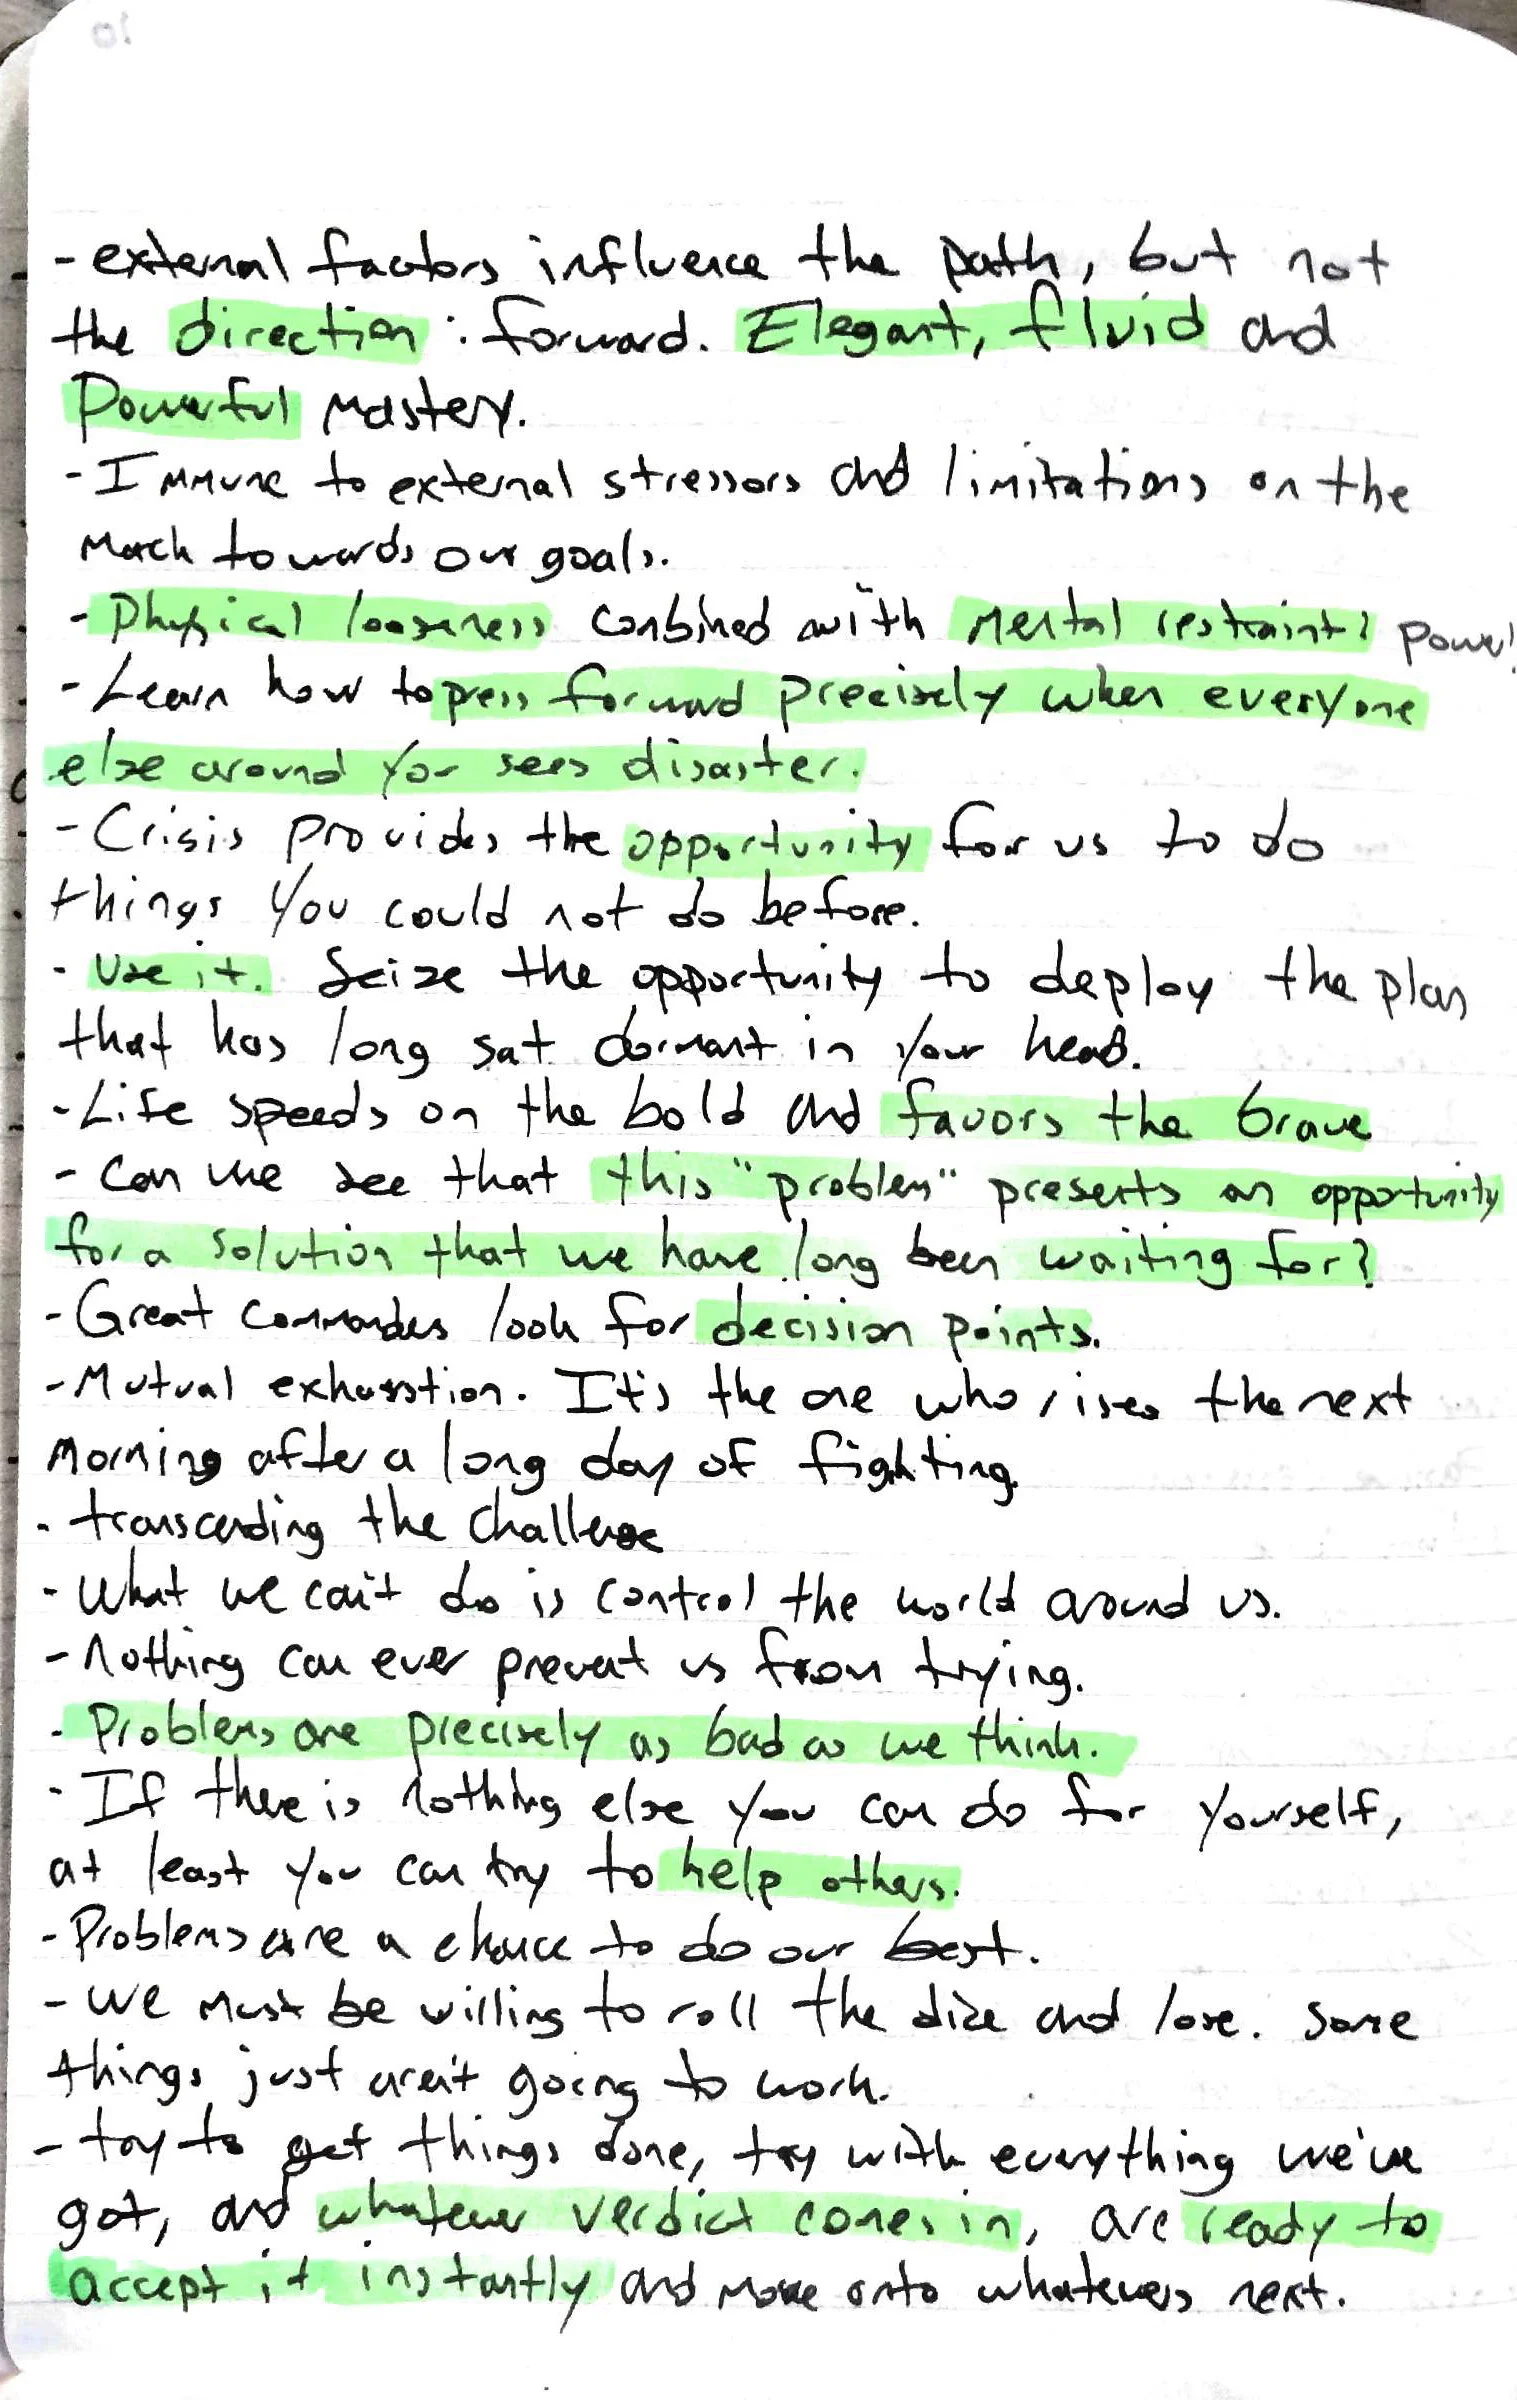 - external factors influence the path, but not
the direction : forward. Elegant, fluid and
Powerful mastery.
- Immune to external stressors and limitations on the
march towards our goals.
- Physical looseness combined with mental restraint? power!
- Learn how to press forward precisely when everyone
else around you sees disaster.
- Crisis provides the opportunity for us to do
things you could not do before.
- Use it. Seize the opportunity to deploy the plan
that has long sat dormant in your head.
- Life speeds on the bold and favors the brave
- Can we see that this "problem" presents an opportunity
for a solution that we have long been waiting for?
- Great commanders look for decision points.
- Mutual exhaustion. It's the one who rises the next
morning after a long day of fighting.
- transcending the challenge
- What we can't do is control the world around us.
- Nothing can ever prevent us from trying.
- Problems are precisely as bad as we think.
- If there is nothing else you can do for yourself,
at least you can try to help others.
- Problems are a chance to do our best.
- We must be willing to roll the dice and lose. Some
things just aren't going to work.
- try to get things done, try with everything we've
got, and whatever verdict comes in, are ready to
accept it instantly and move onto whatevers next.